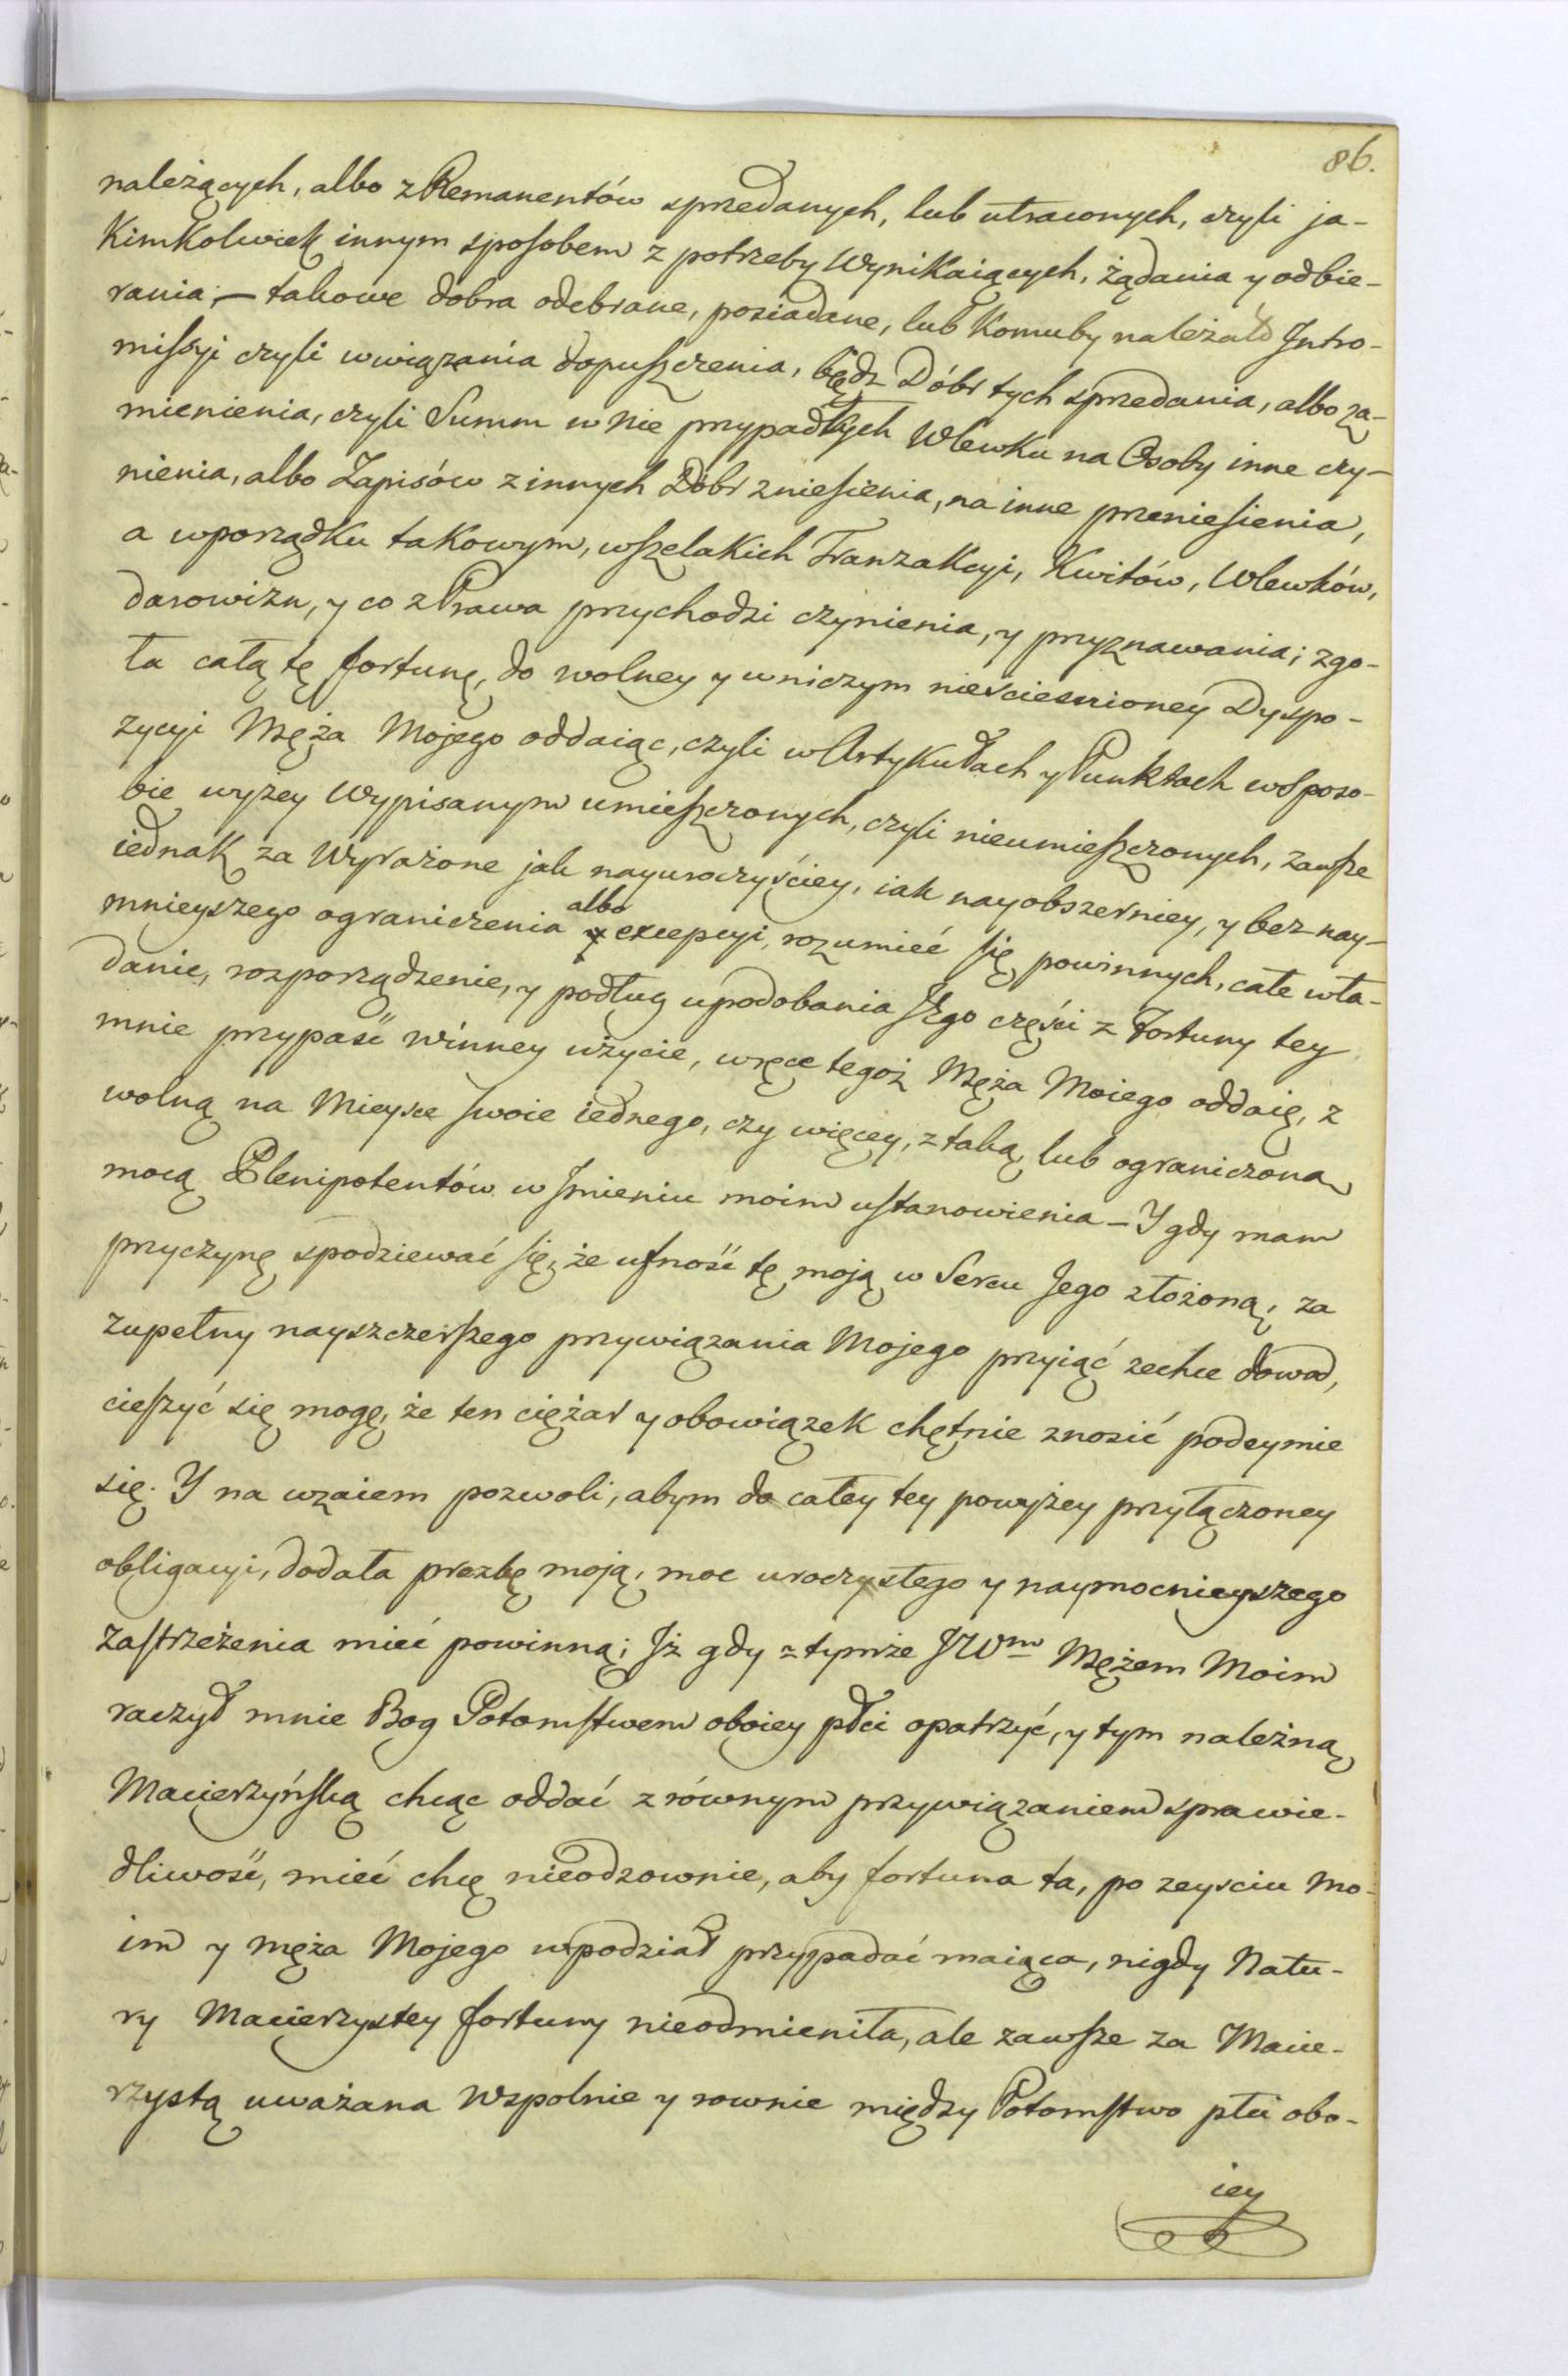 86.
należących, albo z Remanentów sprzedanych, lub utraconych, czyli ja-
Kimkolwiek innym sposobem z potrzeby Wynikaiących, żądania y odbie-
rania; – takowe dobra odebrane, posiadane, lub Komuby należało Intro-
missyi czyli wwiązania dopuszczenia, bądz Dóbr tych sprzedania, albo za-
mienienia, czyli Summ w nie przypadłych Wlewku na Osoby inne czy-
nienia, albo Zapisów z innych Dóbr zniesienia, na inne przeniesienia,
a wporządku takowym, wszelakich Tranzakcyi, Kwitów, Wlewków,
darowizn, y co z Prawa przychodzi czynienia, y przyznawania; zgo-
ła całą tę fortunę, do wolney y wniczym nieściesnioney Dyspo-
zycyi Męża Mojego oddaiąc, czyli w Artykułach y Punktach w Sposo-
bie wyżey Wypisanym umieszczonych, czyli nieumieszczonych, zawsze
iednak za Wyrażone jak nayuroczyściey, iak nayobszerniey, y bez nay-
mnieyszego ograniczenia albo excepcyi, rozumieć się powinnych, całe wła-
danie, rozporządzenie, y podług upodobania Jego części z Fortuny tey
mnie przypaść winney użycie, wręce tegoż Męża Moiego oddaię, z
wolną na Mieysce swoie iednego, czy więcey, z taką, lub ograniczoną
mocą Plenipotentów w Imieniu moim ustanowienia – Y gdy mam
przyczynę spodziewać się, że ufność tę moją w Sercu Jego złożoną, za
zupełny nayszczerszego przywiązania Mojego przyiąć zechce dowod,
cieszyć się mogę, że ten ciężar y obowiązek chętnie znosić podeymie
się. Y na wzaiem pozwoli, abym do całey tey powyżey przyłączoney
obligacyi, dodała prozbę moją, moc uroczystego y naymocnieyszego
zastrzeżenia mieć powinną; Iż gdy z tymże JWm Mężem Moim
raczył mnie Bog Potomstwem oboiey płci opatrzyć, y tym należną
Macierzyńską chcąc oddać z równym przywiązaniem sprawie-
dliwość, mieć chcę nieodzownie, aby fortuna ta, po zeysciu Mo-
im y męża Mojego wpodział przypadać maiąca, nigdy Natu-
ry Macierzystey fortuny nieodmieniła, ale zawsze za Macie-
rzystą uważana Wspolnie y rownie między Potomstwo płci obo-
iey